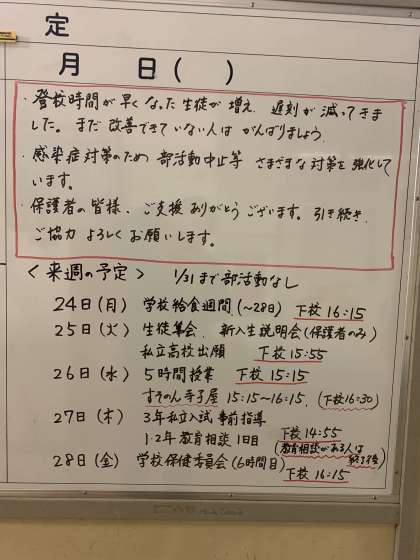 定
月 日( )
・登校時間が早くなった生徒が増え、遅刻が減ってきま
した。まだ改善できていない人はがんばりましょう。
・感染症対策のため部活動中止等 さまざまな対策を強化して
います。
・保護者の皆様、ご支援ありがとうございます。引き続き、
ご協力よろしくお願いします。
<来週の予定> 1/31まで部活動なし
24日(月) 学校給食週間(~28日) 下校16:15
25日(火) 生徒集会、新入生説明会(保護者のみ)
私立高校出願 下校15:55
26日(水) 5時間授業 下校15:15
すその寺子屋 15:15~16:15、(下校16:30)
27日(木) 3年私立入試事前指導
1・2年教育相談1日目 下校14:55
(教育相談がある人は
終了後)
28日(金) 学校保健委員会(6時間目)
下校16:15